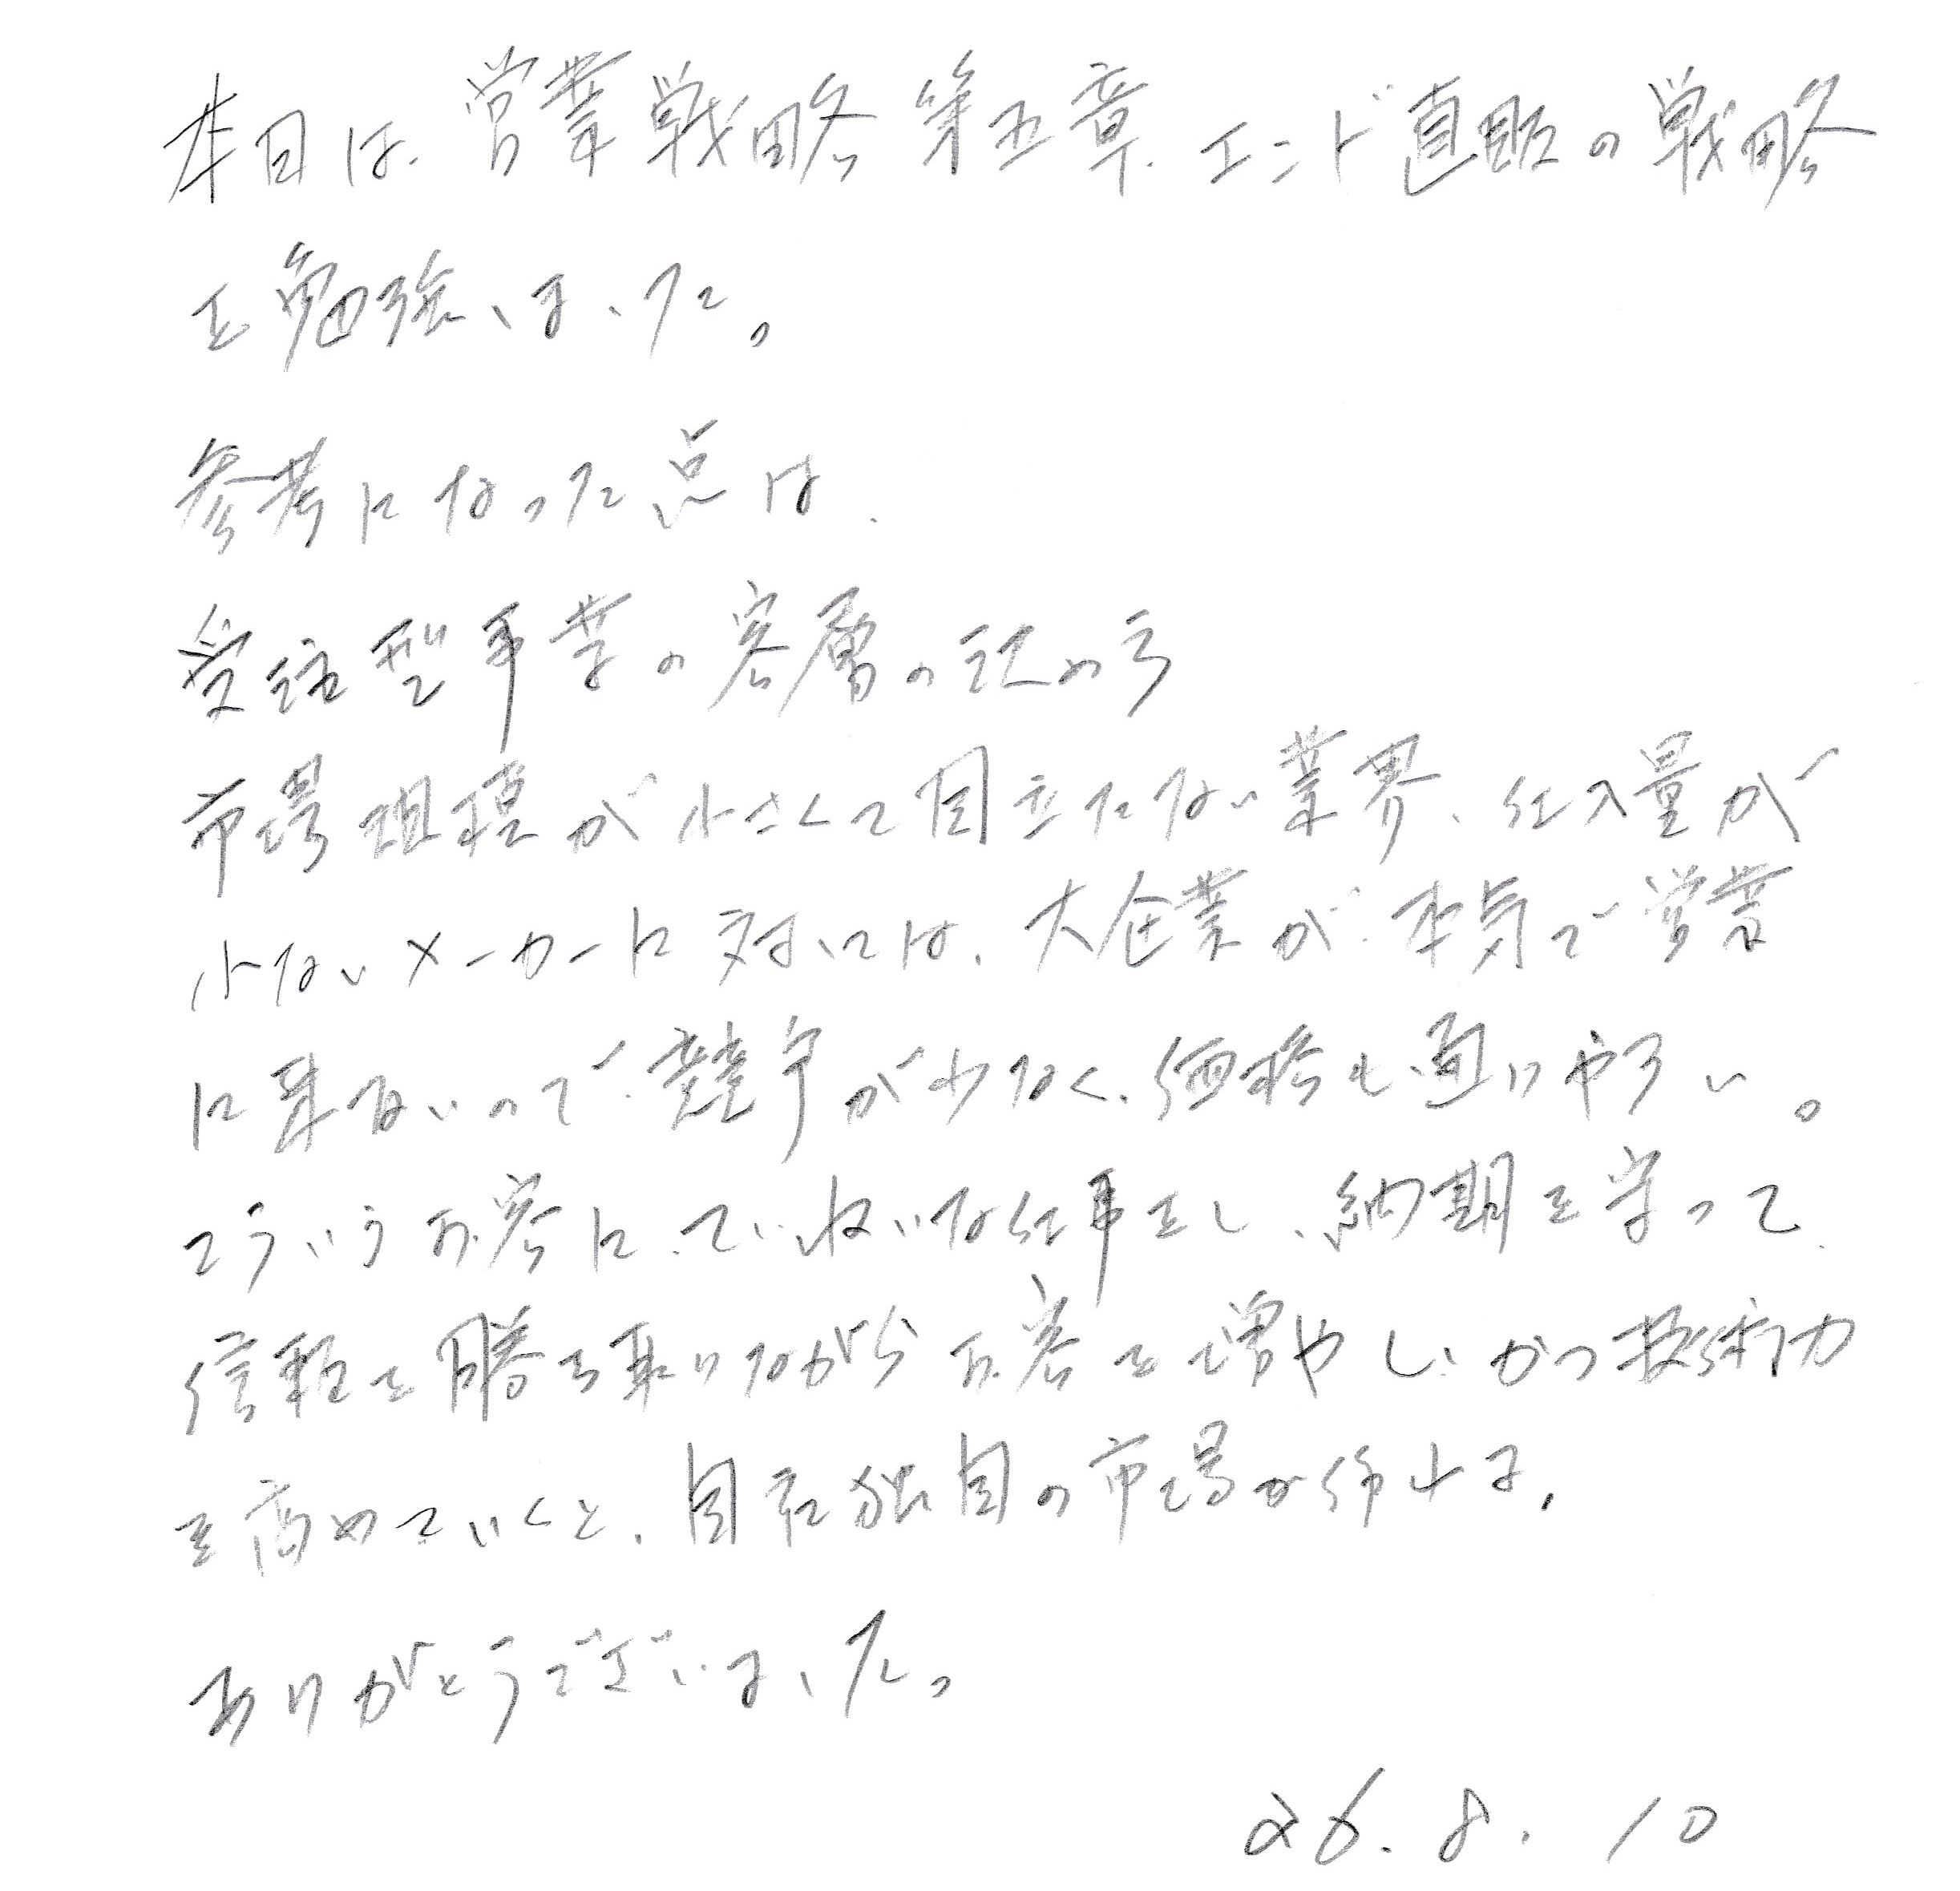 本日は、営業戦略第五章、エンド直販の戦略
を勉強しました。
参考になった点は、
受注型事業の客層の決め方
市場規模が小さくて目立たない業界、仕入量が
少ないメーカーに対しては、大企業が本気で営業
に来ないので、競争が少なく、価格も通りやすい。
こういうお客に、ていねいな仕事をし、納期を守って
信頼を勝ち取りながらお客を増やし、かつ技術力
を高めていくと、自社独自の市場が作れます。
ありがとうございました。
26.8.10